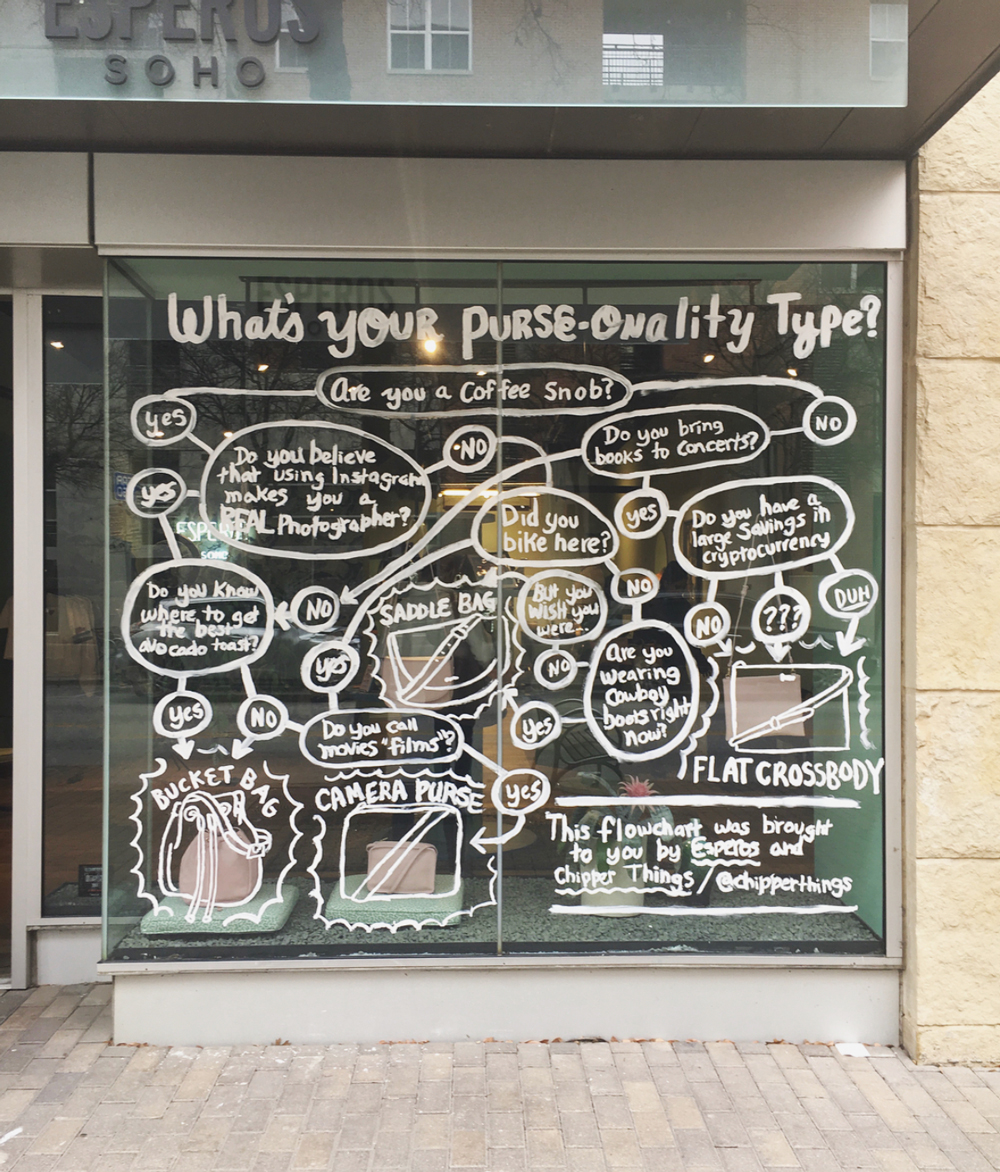 ESPEROS
SOHO
What's YOUR PURSE-ONality Type?
Are you a Coffee Snob?
yes
NO
Do you bring
books to concerts?
NO
Do you believe
that using Instagram
makes you a
REAL Photographer?
yes
yes
Do you have a
large savings in
cryptocurrency
Did you
bike here?
Do you know
where to get
the best
avocado toast?
NO
SADDLE BAG
But you
wish you
were...
NO
NO
???
DUH
yes
NO
Are you
wearing
Cowboy
boots right
now?
yes
NO
Do you call
movies "films"?
yes
FLAT CROSSBODY
BUCKET BAG
CAMERA PURSE
yes
This flowchart was brought
to you by Esperos and
Chipper Things / @chipperthings